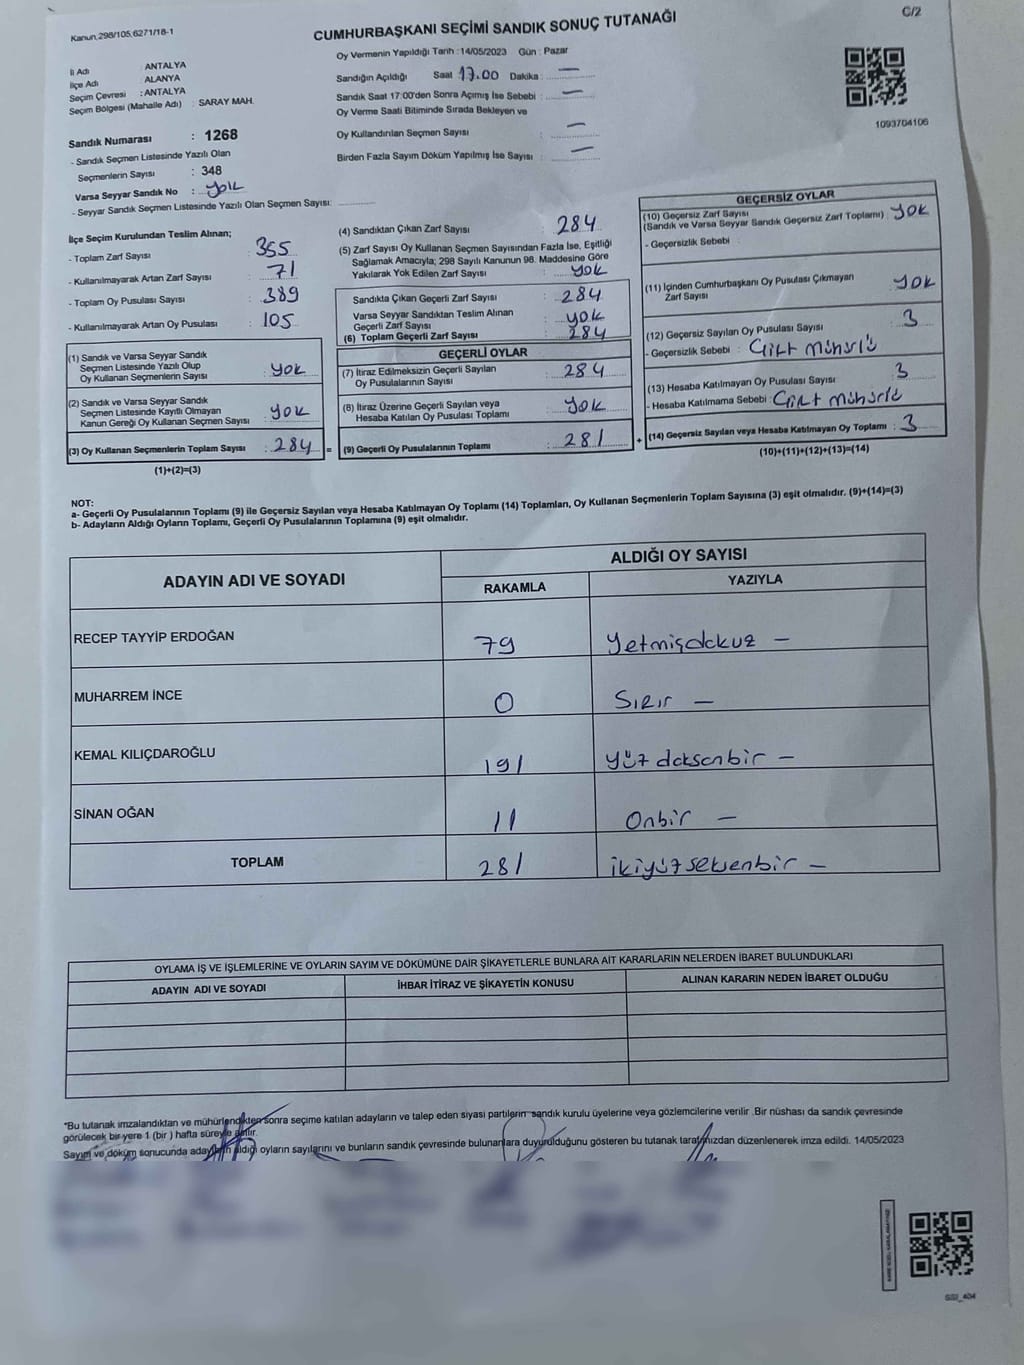 Kanun.298/105,6271/18-1
CUMHURBAŞKANI SEÇİMİ SANDIK SONUÇ TUTANAĞI
C/2
İl Adı : ANTALYA
İlçe Adı : ALANYA
Seçim Çevresi : ANTALYA
Seçim Bölgesi (Mahalle Adı) : SARAY MAH.
Sandık Numarası : 1268
- Sandık Seçmen Listesinde Yazılı Olan
Seçmenlerin Sayısı : 348
Varsa Seyyar Sandık No : yok
- Seyyar Sandık Seçmen Listesinde Yazılı Olan Seçmen Sayısı:
Oy Vermenin Yapıldığı Tarih :14/05/2023 Gün : Pazar
Sandığın Açıldığı Saat 17.00 Dakika : —
Sandık Saat 17:00'den Sonra Açımış İse Sebebi : —
Oy Verme Saati Bitiminde Sırada Bekleyen ve
Oy Kullandırılan Seçmen Sayısı : —
Birden Fazla Sayım Döküm Yapılmış İse Sayısı : —
1093704106
İlçe Seçim Kurulundan Teslim Alınan;
- Toplam Zarf Sayısı : 355
- Kullanılmayarak Artan Zarf Sayısı : 71
- Toplam Oy Pusulası Sayısı : 389
- Kullanılmayarak Artan Oy Pusulası : 105
(1) Sandık ve Varsa Seyyar Sandık
Seçmen Listesinde Yazılı Olup
Oy Kullanan Seçmenlerin Sayısı : yok
(2) Sandık ve Varsa Seyyar Sandık
Seçmen Listesinde Kayıtlı Olmayan
Kanun Gereği Oy Kullanan Seçmen Sayısı : yok
(3) Oy Kullanan Seçmenlerin Toplam Sayısı : 284 =
(1)+(2)=(3)
(4) Sandıktan Çıkan Zarf Sayısı : 284
(5) Zarf Sayısı Oy Kullanan Seçmen Sayısından Fazla İse, Eşitliği
Sağlamak Amacıyla; 298 Sayılı Kanunun 98. Maddesine Göre
Yakılarak Yok Edilen Zarf Sayısı : yok
Sandıkta Çıkan Geçerli Zarf Sayısı : 284
Varsa Seyyar Sandıktan Teslim Alınan
Geçerli Zarf Sayısı : yok
(6) Toplam Geçerli Zarf Sayısı : 284
GEÇERLİ OYLAR
(7) İtiraz Edilmeksizin Geçerli Sayılan
Oy Pusulalarının Sayısı : 284
(8) İtiraz Üzerine Geçerli Sayılan veya
Hesaba Katılan Oy Pusulası Toplamı : yok
(9) Geçerli Oy Pusulalarının Toplamı : 281 +
GEÇERSİZ OYLAR
(10) Geçersiz Zarf Sayısı
(Sandık ve Varsa Seyyar Sandık Geçersiz Zarf Toplamı) : yok
- Geçersizlik Sebebi :
(11) İçinden Cumhurbaşkanı Oy Pusulası Çıkmayan
Zarf Sayısı : yok
(12) Geçersiz Sayılan Oy Pusulası Sayısı : 3
- Geçersizlik Sebebi : Çift mühürlü
(13) Hesaba Katılmayan Oy Pusulası Sayısı : 3
- Hesaba Katılmama Sebebi : Çift mühürlü
(14) Geçersiz Sayılan veya Hesaba Katılmayan Oy Toplamı : 3
(10)+(11)+(12)+(13)=(14)
NOT:
a- Geçerli Oy Pusulalarının Toplamı (9) ile Geçersiz Sayılan veya Hesaba Katılmayan Oy Toplamı (14) Toplamları, Oy Kullanan Seçmenlerin Toplam Sayısına (3) eşit olmalıdır. (9)+(14)=(3)
b- Adayların Aldığı Oyların Toplamı, Geçerli Oy Pusulalarının Toplamına (9) eşit olmalıdır.
ADAYIN ADI VE SOYADI
ALDIĞI OY SAYISI
RAKAMLA YAZIYLA
RECEP TAYYİP ERDOĞAN 79 Yetmişdokuz —
MUHARREM İNCE 0 Sıfır —
KEMAL KILIÇDAROĞLU 191 yüz doksanbir —
SİNAN OĞAN 11 Onbir —
TOPLAM 281 ikiyüzseksenbir —
OYLAMA İŞ VE İŞLEMLERİNE VE OYLARIN SAYIM VE DÖKÜMÜNE DAİR ŞİKAYETLERLE BUNLARA AİT KARARLARIN NELERDEN İBARET BULUNDUKLARI
ADAYIN ADI VE SOYADI İHBAR İTİRAZ VE ŞİKAYETİN KONUSU ALINAN KARARIN NEDEN İBARET OLDUĞU
*Bu tutanak imzalandıktan ve mühürlendikten sonra seçime katılan adayların ve talep eden siyasi partilerin sandık kurulu üyelerine veya gözlemcilerine verilir .Bir nüshası da sandık çevresinde
görülecek bir yere 1 (bir ) hafta süreyle asılır.
Sayım ve döküm sonucunda adayların aldığı oyların sayılarını ve bunların sandık çevresinde bulunanlara duyurulduğunu gösteren bu tutanak tarafımızdan düzenlenerek imza edildi. 14/05/2023